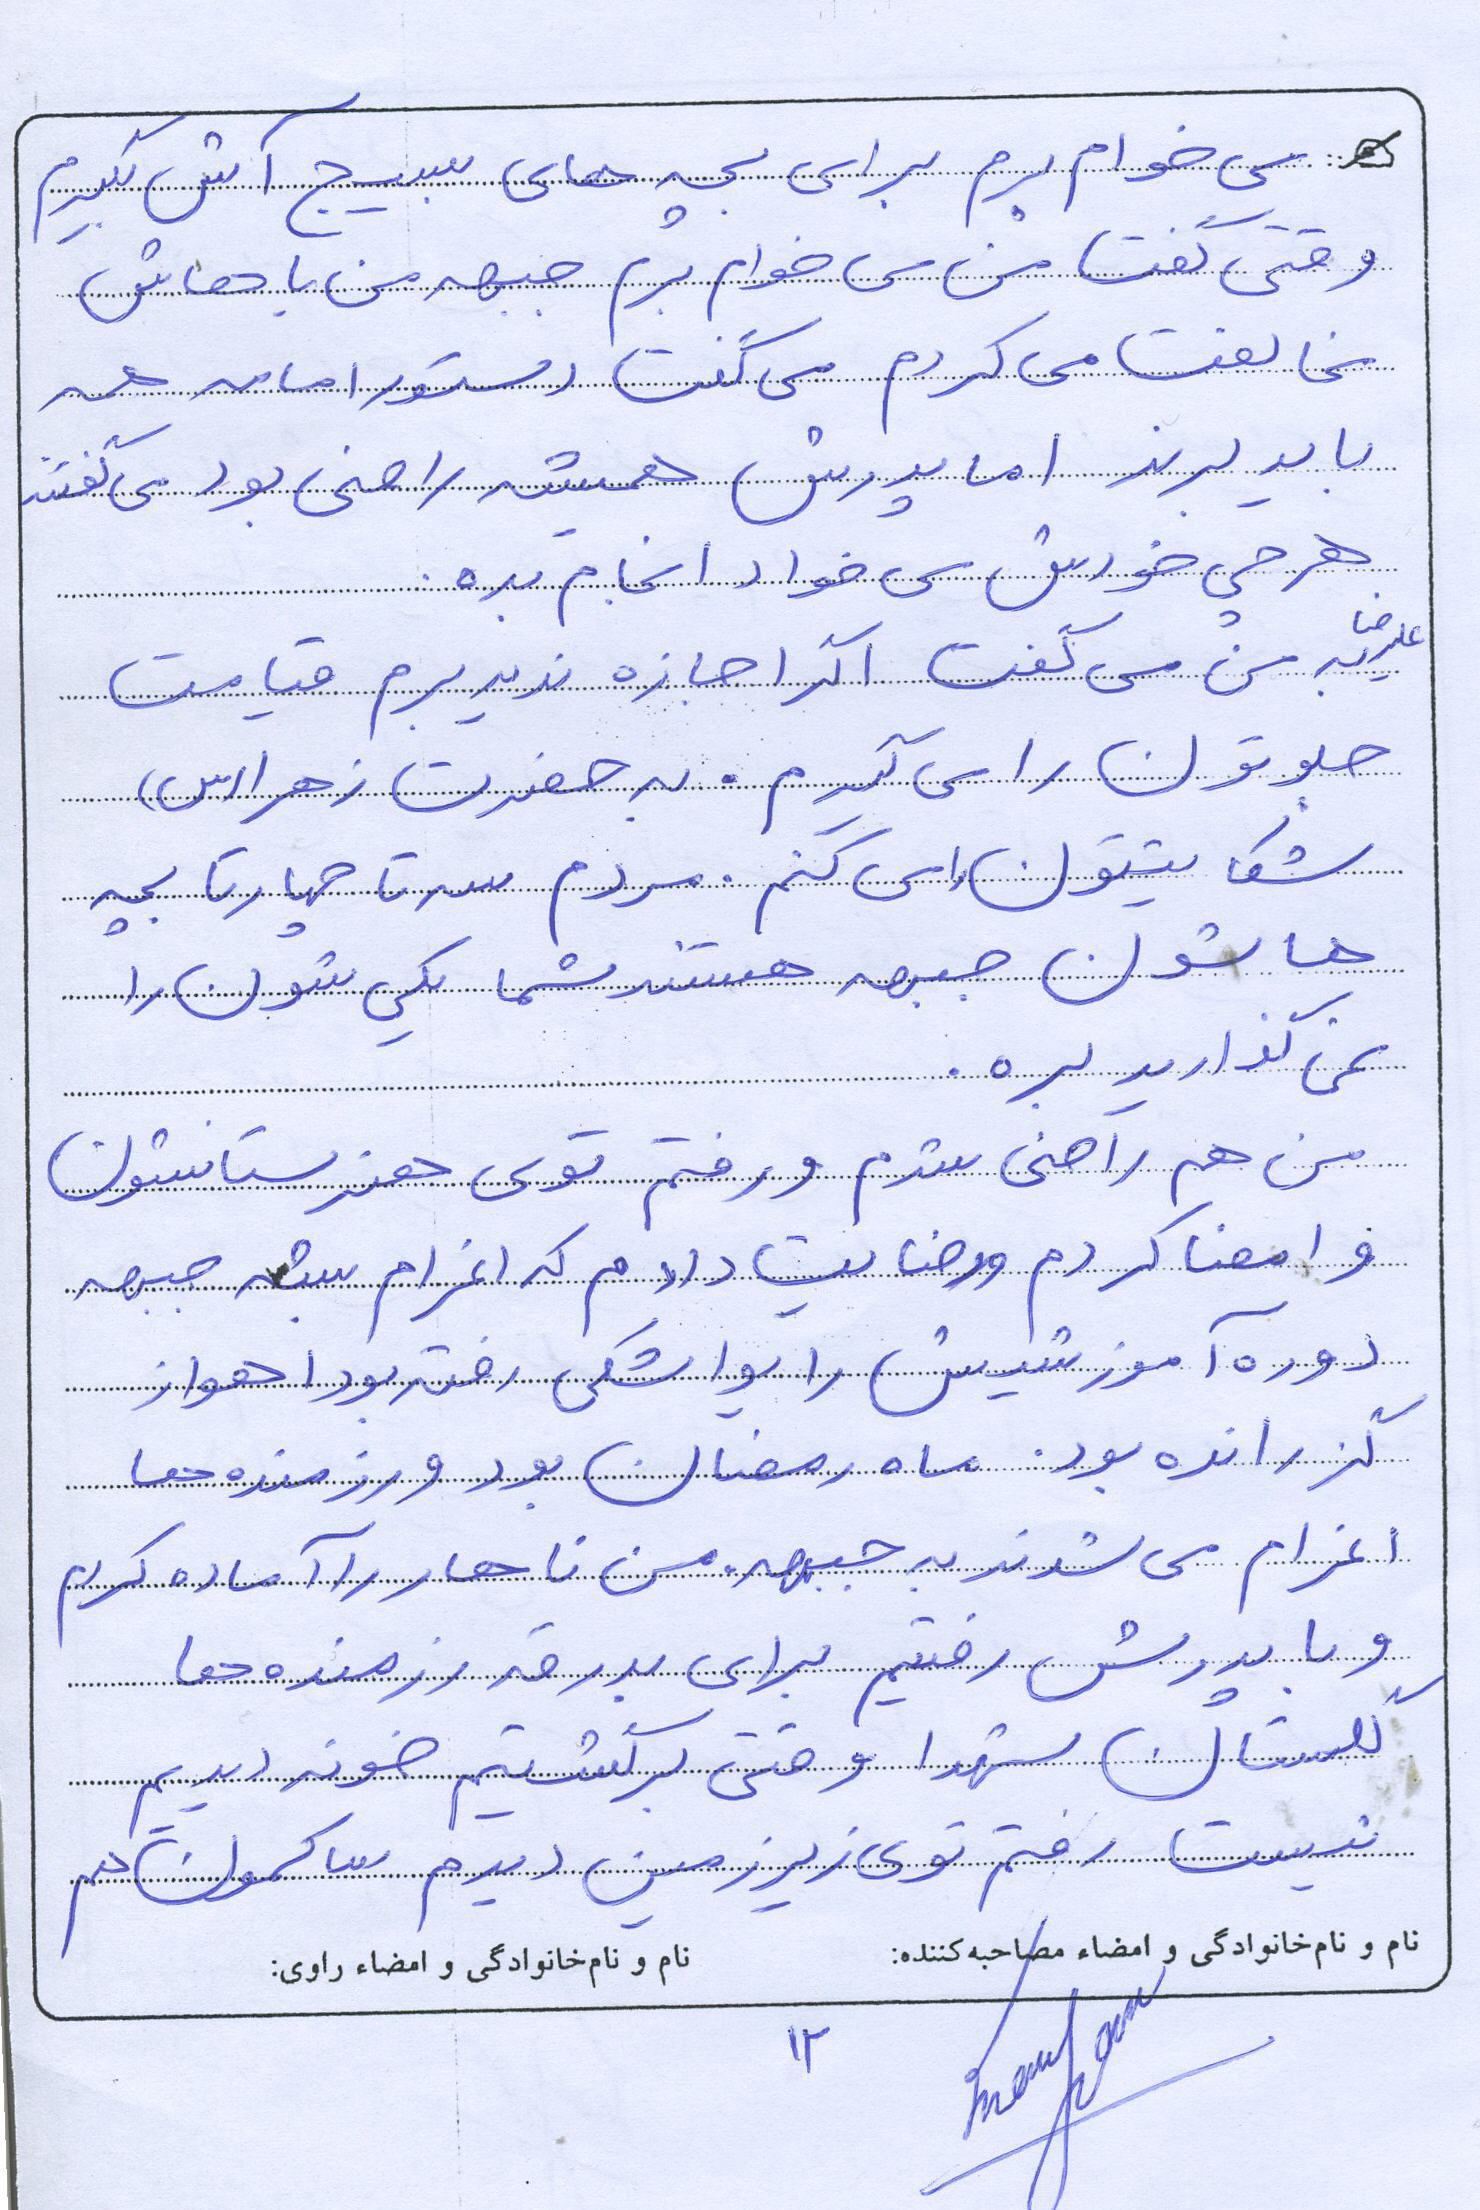 می خوام برم برای بچه های بسیج آش بگیرم
وقتی گفت من می خوام برم جبهه من باهاش
مخالفت می کردم می گفت دستور امامه همه
باید برند اما پدرش همیشه راضی بود می گفتند
هر چی خودش می خواد انجام بده.
علیرضا به من می گفت اگر اجازه ندید برم قیامت
جلوتون را می گیرم. به حضرت زهرا (س)
شکایتتون را می کنم. مردم سه تا چهار تا بچه
هاشون جبهه هستند شما یکی شون را
نمی گذارید بره.
من هم راضی شدم و رفتم توی هنرستانشون
و امضا کردم و رضایت دادم که اعزام بشه جبهه
دوره آموزشیش را یواشکی رفته بود اهواز
گذرانده بود. ماه رمضان بود و رزمنده ها
اعزام می شدند به جبهه. من ناهار را آماده کردم
و با پدرش رفتیم برای بدرقه رزمنده ها
گلستان شهدا وقتی برگشتیم خونه دیدیم
نیست رفتم توی زیرزمین دیدم ساکمون هم
نام و نام‌خانوادگی و امضاء مصاحبه‌کننده: نام و نام‌خانوادگی و امضاء راوی:
۱۲